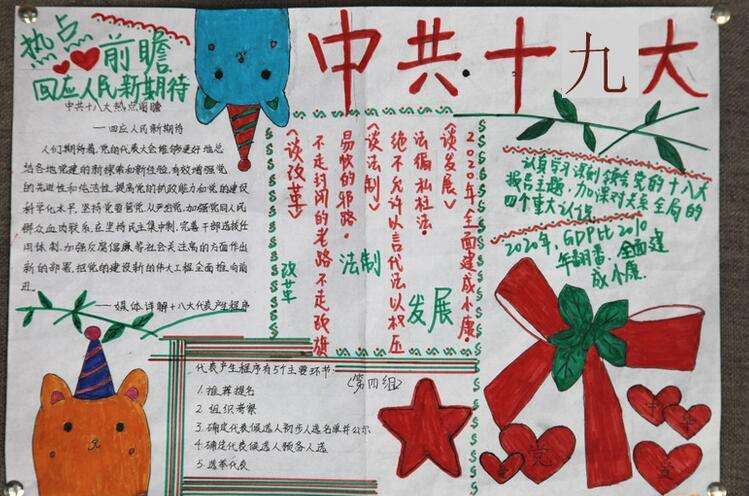 中共十九大
热点
前瞻
回应人民新期待
中共十八大热点前瞻
——回应人民新期待
人们期待着,党的代表大会能够更好地总
结各地党建的新探索和新经验,有效增强党
的先进性和纯洁性,提高党的执政能力和党的建设
科学化水平,坚持党要管党,从严治党,加强党同人民
群众血肉联系,在坚持民主集中制,完善干部选拔任
用体制,加强反腐倡廉等社会关注高的方面作出
新的部署,把党的建设新的伟大工程全面推向前
进。
——媒体详解十八大代表产生程序
《谈发展》
2020年全面建成小康。
发展
《谈法制》
绝不允许以言代法以权压
法徇私枉法。
法制
《谈改革》
不走封闭的老路不走改旗
易帜的邪路。
改革
认真学习深刻领会党的十八大
报告主题,加深对关系全局的
四个重大认识
2020年,GDP比2010
年翻番,全面建
成小康
代表产生程序有5个主要环节
1.推荐提名
2.组织考察
3.确定代表候选人初步人选名单并公示
4.确定代表候选人预备人选
5.选举代表
《第四组》
党